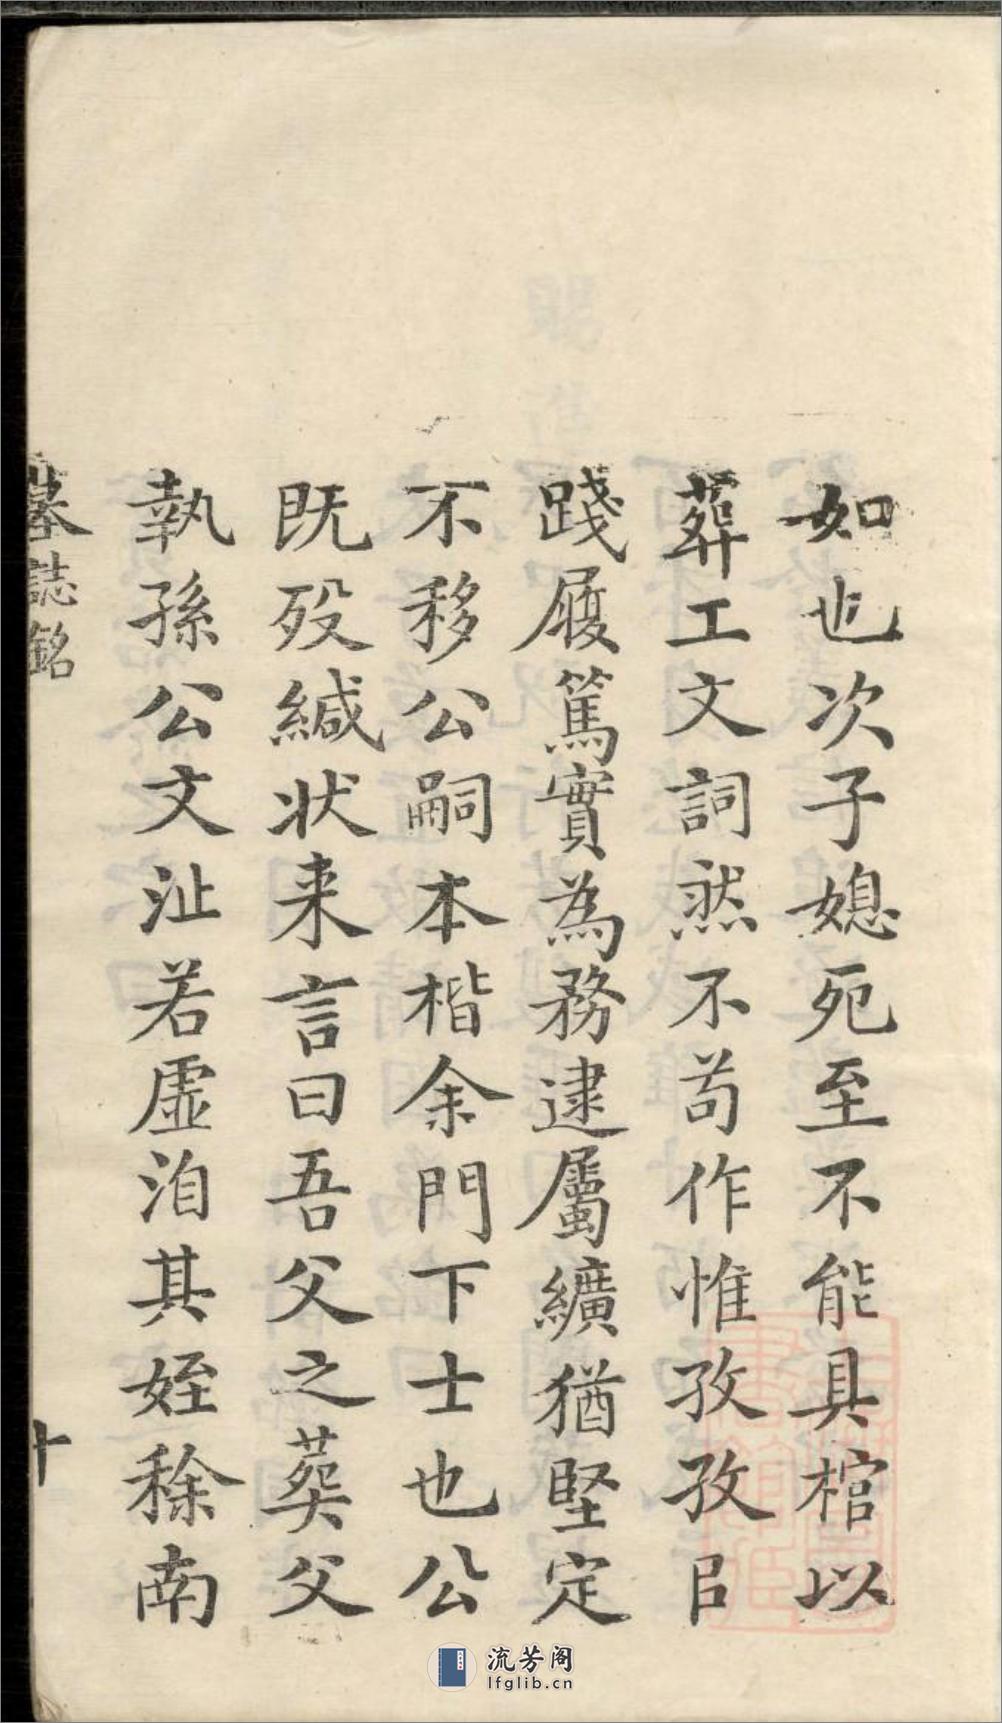 如也次子媳死至不能具棺以
葬工文詞然不苟作惟孜孜㠯
踐履篤實為務逮屬纊猶堅定
不移公嗣本楷余門下士也公
既歿緘状来言曰吾父之葬父
執孫公文沚若虛洎其姪稌南
墓誌銘
十
流芳阁
lfglib.cn